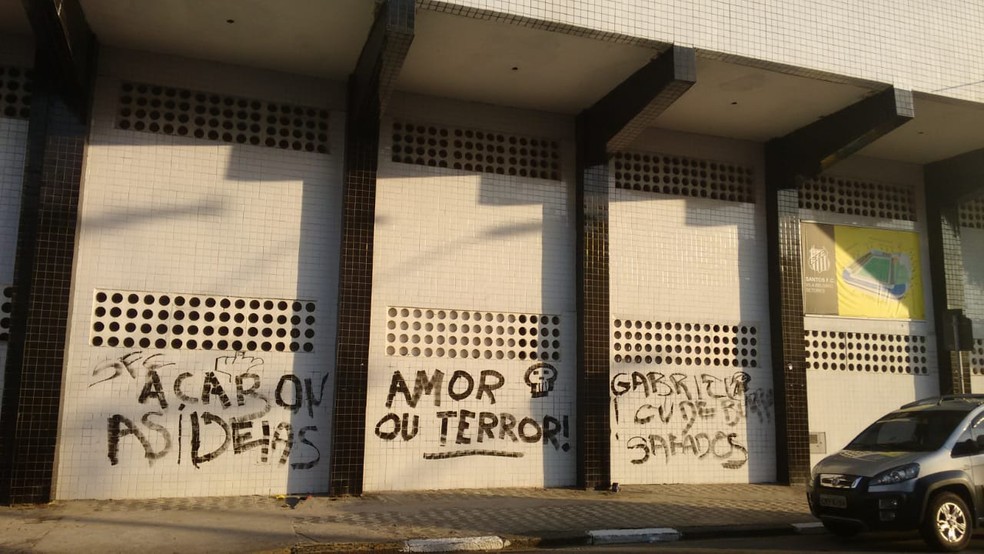 SFC
ACABOU
AS IDEIAS
AMOR
OU TERROR!
GABRIEL
SAFADOS
SANTOS F.C.